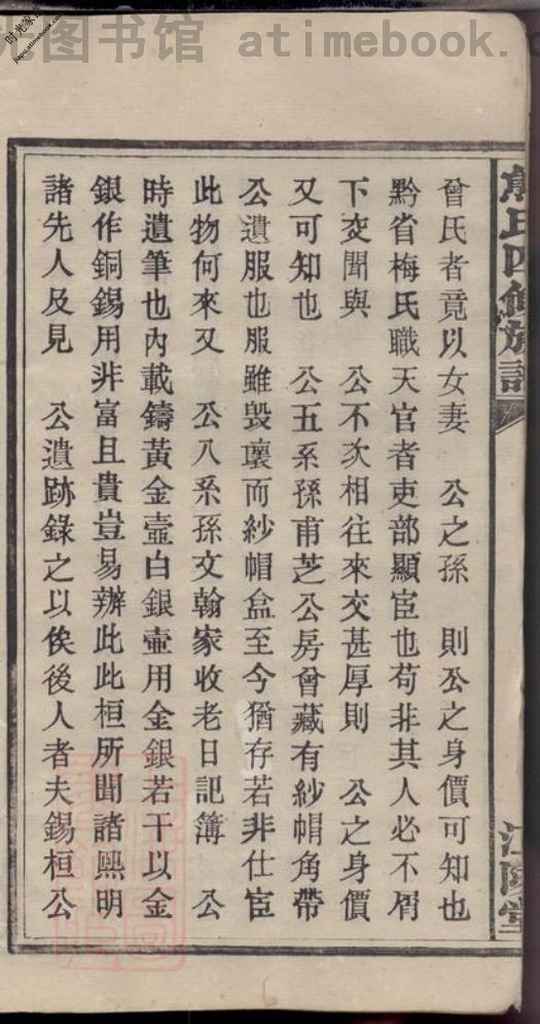 图书馆 atimebook.c
氏四修族譜
江陵堂
曾氏者竟以女妻 公之孫 則公之身價可知也
黔省梅氏職天官者吏部顯宦也苟非其人必不屑
下交聞與 公不次相往來交甚厚則 公之身價
又可知也 公五系孫甫芝公房曾藏有紗帽角帶
公遺服也服雖毀壞而紗帽盒至今猶存若非仕宦
此物何來又 公八系孫文翰家收老日記簿 公
時遺筆也內載鑄黃金壺白銀壺用金銀若干以金
銀作銅錫用非富且貴豈易辦此此桓所聞諸熙明
諸先人及見 公遺跡錄之以俟後人者夫錫桓公